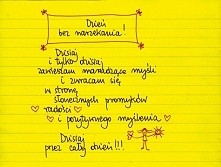 Dzień
bez narzekania!
Dzisiaj
i tylko dzisiaj
zawieszam marudzące myśli
i zwracam się
w stronę
słonecznych promyków
radości
i pozytywnego myślenia
Dzisiaj
przez cały dzień!!!